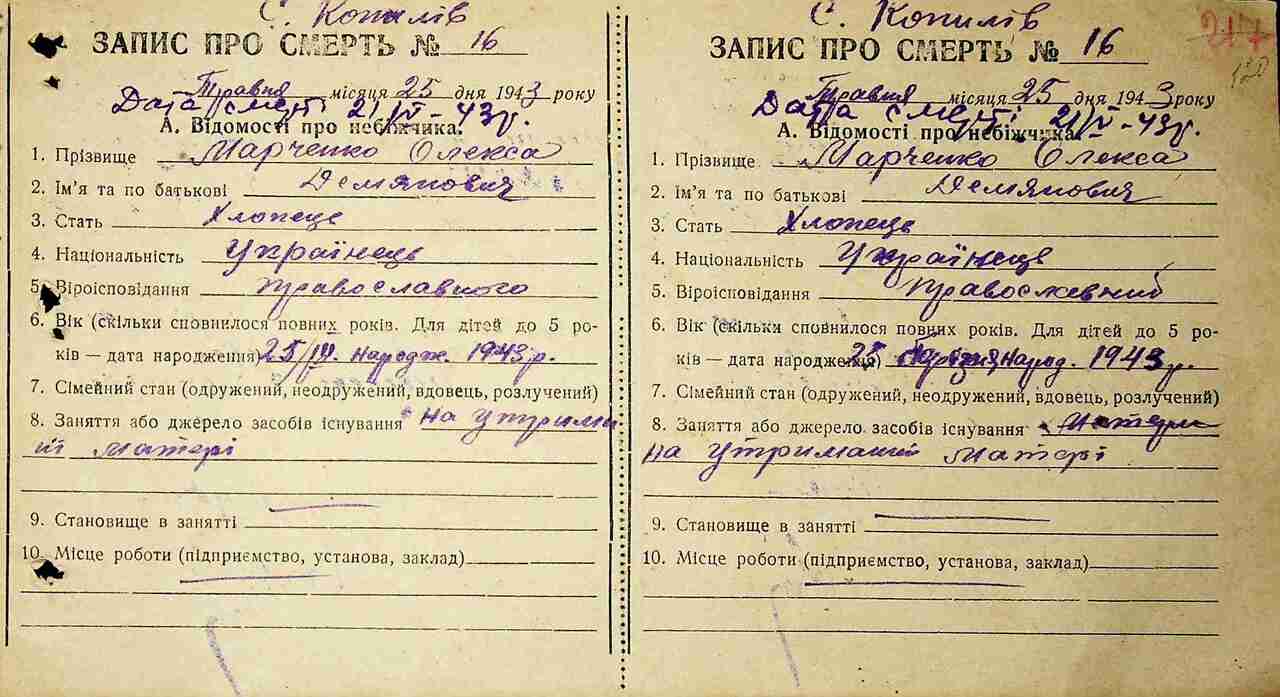 С. Копилів
ЗАПИС ПРО СМЕРТЬ № 16
Травня місяця 25 дня 1943 року
Дата смерті 21/V - 43 г.
А. Відомості про небіжчика:
1. Прізвище Марченко Олекса
2. Ім’я та по батькові Демянович
3. Стать Хлопець
4. Національність Українець
5. Віроісповідання православного
6. Вік (скільки сповнилося повних років. Для дітей до 5 ро-
ків — дата народження) 25/IV. народж. 1943 р.
7. Сімейний стан (одружений, неодружений, вдовець, розлучений)
8. Заняття або джерело засобів існування на утрима
ії матері
9. Становище в занятті
10. Місце роботи (підприємство, установа, заклад)
С. Копилів
ЗАПИС ПРО СМЕРТЬ № 16
217
120
Травня місяця 25 дня 1943 року
Дата смерті 21/V - 43 г.
А. Відомості про небіжчика
1. Прізвище Марченко Олекса
2. Ім’я та по батькові Демянович
3. Стать Хлопець
4. Національність Українець
5. Віроісповідання православний
6. Вік (скільки сповнилося повних років. Для дітей до 5 ро-
ків — дата народження) 25 народ. 1943 р.
7. Сімейний стан (одружений, неодружений, вдовець, розлучений)
8. Заняття або джерело засобів існування матери
на утриманії матері
9. Становище в занятті
10. Місце роботи (підприємство, установа, заклад)